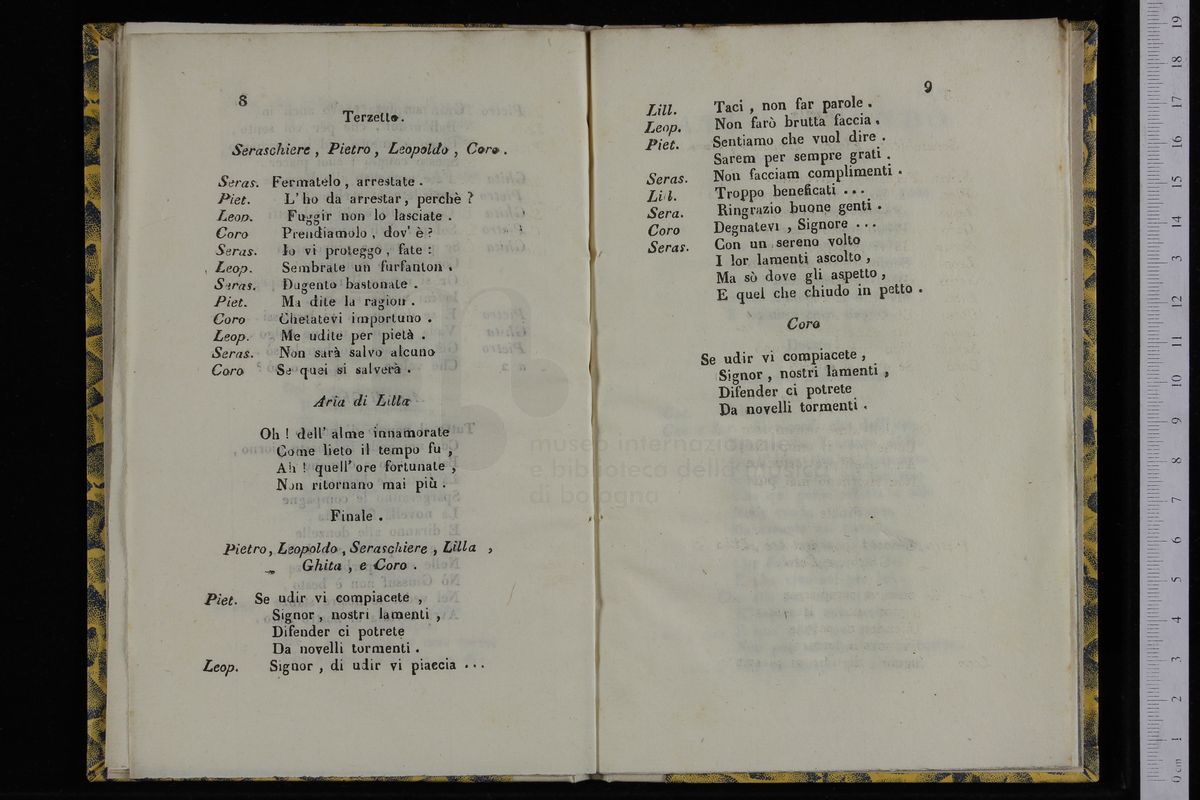 8
Terzetto.
Seraschiere , Pietro , Leopoldo , Coro .
Seras. Fermatelo , arrestate .
Piet. L'ho da arrestar, perchè ?
Leop. Fuggir non lo lasciate .
Coro Prendiamolo , dov' è ?
Seras. Io vi proteggo , fate :
Leop. Sembrate un furfanton .
Seras. Dugento bastonate .
Piet. Ma dite la ragion .
Coro Chetatevi importuno .
Leop. Me udite per pietà .
Seras. Non sarà salvo alcuno
Coro Se quei si salverà .
Aria di Lilla
Oh ! dell' alme innamorate
Come lieto il tempo fu ,
Ah ! quell' ore fortunate ,
Non ritornano mai più .
Finale .
Pietro, Leopoldo , Seraschiere , Lilla ,
Ghita , e Coro .
Piet. Se udir vi compiacete ,
Signor , nostri lamenti ,
Difender ci potrete
Da novelli tormenti .
Leop. Signor , di udir vi piaccia . . .
9
Lill. Taci , non far parole .
Leop. Non farò brutta faccia .
Piet. Sentiamo che vuol dire .
Sarem per sempre grati .
Seras. Non facciam complimenti .
Lil. Troppo beneficati . . .
Sera. Ringrazio buone genti .
Coro Degnatevi , Signore . . .
Seras. Con un sereno volto
I lor lamenti ascolto ,
Ma sò dove gli aspetto ,
E quel che chiudo in petto .
Coro
Se udir vi compiacete ,
Signor , nostri lamenti ,
Difender ci potrete
Da novelli tormenti .
museo internazionale
e biblioteca della musica
di bologna
0 cm 1 2 3 4 5 6 7 8 9 10 11 12 13 14 15 16 17 18 19